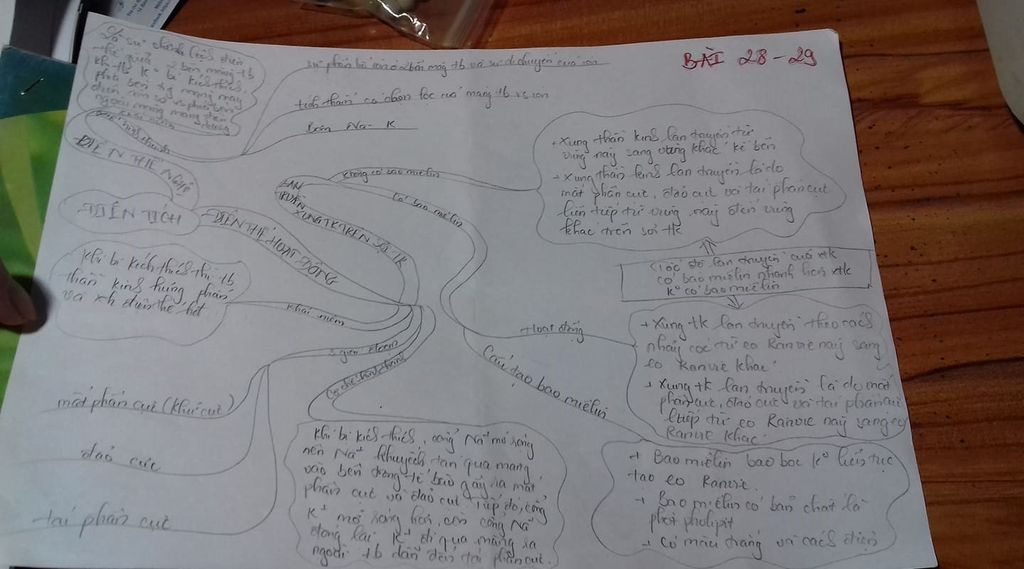 BÀI 28-29
Là sự chênh lệch điện
thế giữa 2 bên màng tb
khi tb k° bị kích thích,
phía bên tg màng
ngoài màng mang điện
dương
sự phân bố ion ở 2 bên màng tb và sự di chuyển của ion
tính thấm có chọn lọc của màng tb vs ion
Bơm Na - K
ĐIỆN THẾ NGHỈ
ĐIỆN TÍCH
ĐIỆN THẾ HOẠT ĐỘNG
LAN
TRUYỀN
XUNG TK TRÊN SỢI TK
không có bao miêlin
Có bao miêlin
+ Xung thần kinh lan truyền từ
vùng này sang vùng khác kề bên
+ Xung thần kinh lan truyền là do
mất phân cực, đảo cực và tái phân cực
liên tiếp từ vùng này đến vùng
khác trên sợi tk
Tốc độ lan truyền của xtk
có bao miêlin nhanh hơn xtk
k° có bao miêlin
Khi bị kích thích thì tb
thần kinh hưng phấn
và xh điện thế hđ
khái niệm
3 giai đoạn
Cơ chế hình thành
Hoạt động
Cấu tạo bao miêlin
+ Xung tk lan truyền theo cách
nhảy cóc từ eo Ranvie này sang
eo Ranvie khác
+ Xung tk lan truyền là do mất
phân cực, đảo cực và tái phân cực
l/tiếp từ eo Ranvie này sang eo
Ranvie khác.
mất phân cực (khử cực)
đảo cực
tái phân cực
Khi bị kích thích, cổng Na⁺ mở rộng
nên Na⁺ khuyếch tán qua màng
vào bên trong tế bào gây ra mất
phân cực và đảo cực. Tiếp đó, cổng
K⁺ mở rộng hơn, còn cổng Na⁺
đóng lại. K⁺ đi qua màng ra
ngoài tb dẫn đến tái phân cực.
+ Bao miêlin bao bọc k° liên tục
tạo eo Ranvie.
+ Bao miêlin có bản chất là
phôtpholipit
+ Có màu trắng và cách điện